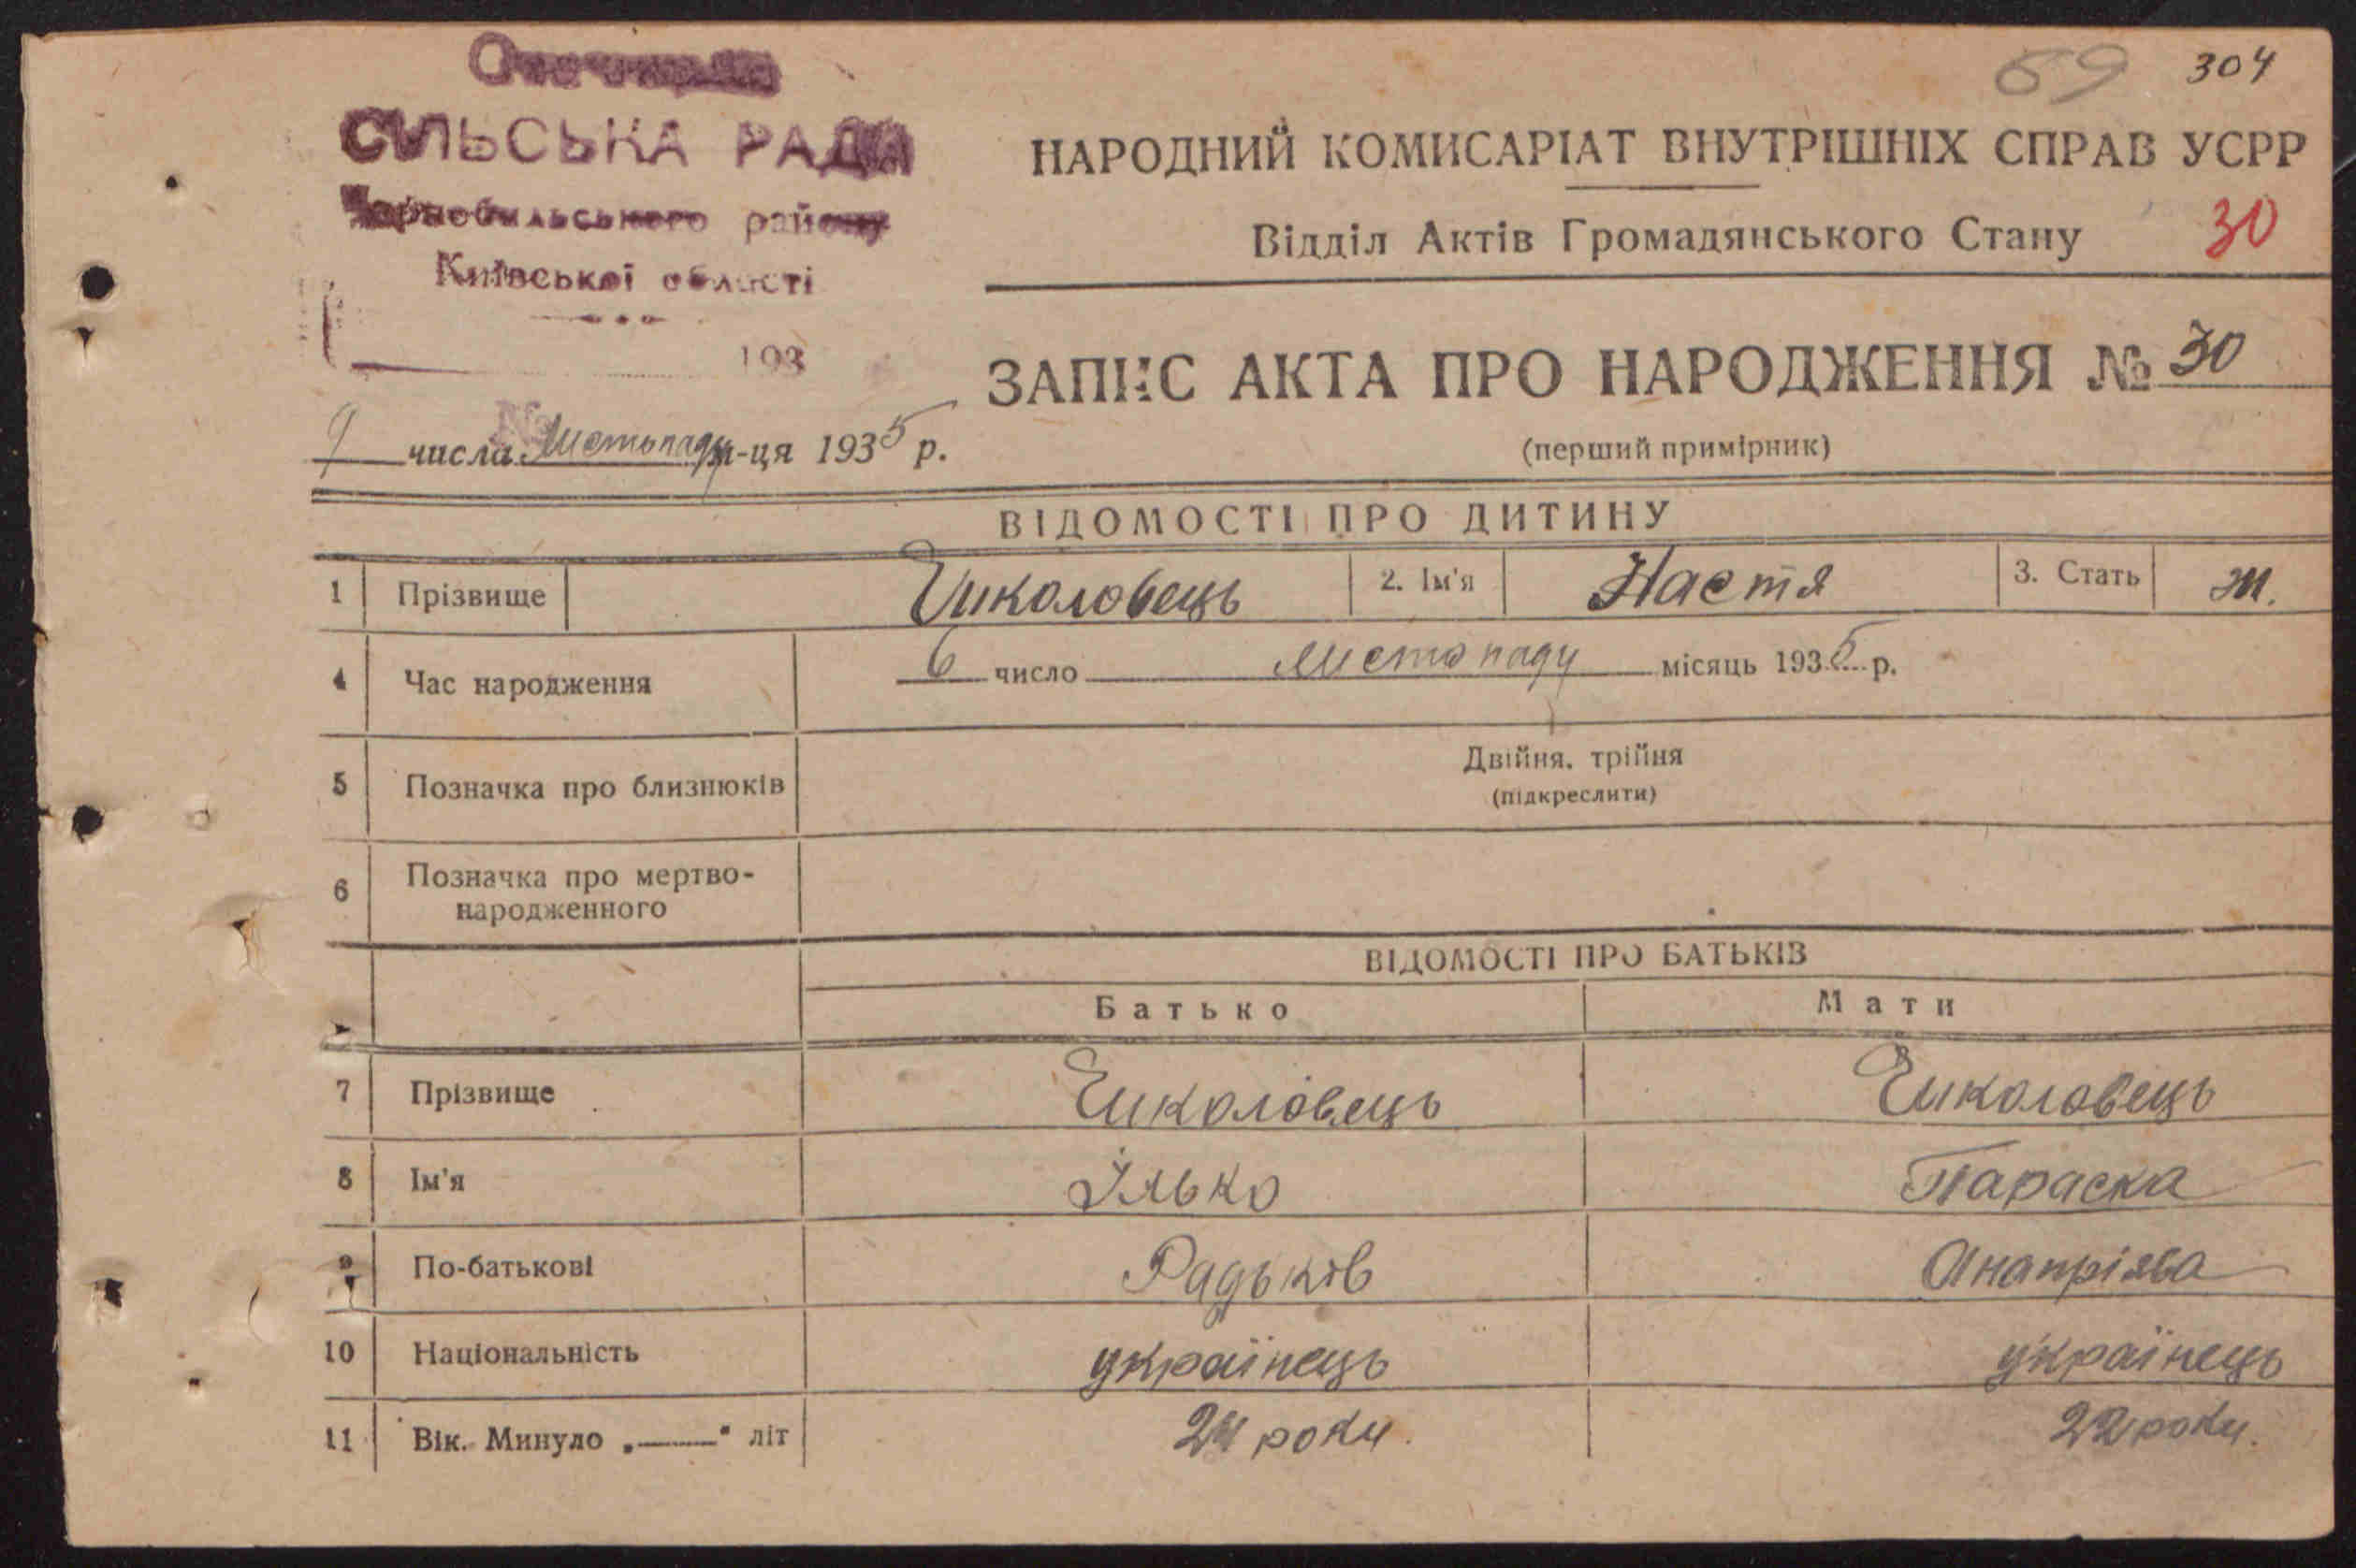 СІЛЬСЬКА РАДА
Чорнобильського району
Київської області
193
59 304
НАРОДНИЙ КОМИСАРІАТ ВНУТРІШНІХ СПРАВ УСРР
Відділ Актів Громадянського Стану 30
ЗАПИС АКТА ПРО НАРОДЖЕННЯ № 30
(перший примірник)
9 числа листопаду м-ця 1935 р.
ВІДОМОСТІ ПРО ДИТИНУ
1 Прізвище 2. Ім'я Настя 3. Стать ж.
4 Час народження 6 число листопаду місяць 1935 р.
5 Позначка про близнюків Двійня, трійня
(підкреслити)
6 Позначка про мертво-
народженного
ВІДОМОСТІ ПРО БАТЬКІВ
Батько Мати
7 Прізвище
8 Ім'я Ілько Параска
9 По-батькові Радьків
10 Національність українець українець
11 Вік. Минуло „——" літ 24 роки. 22 роки.